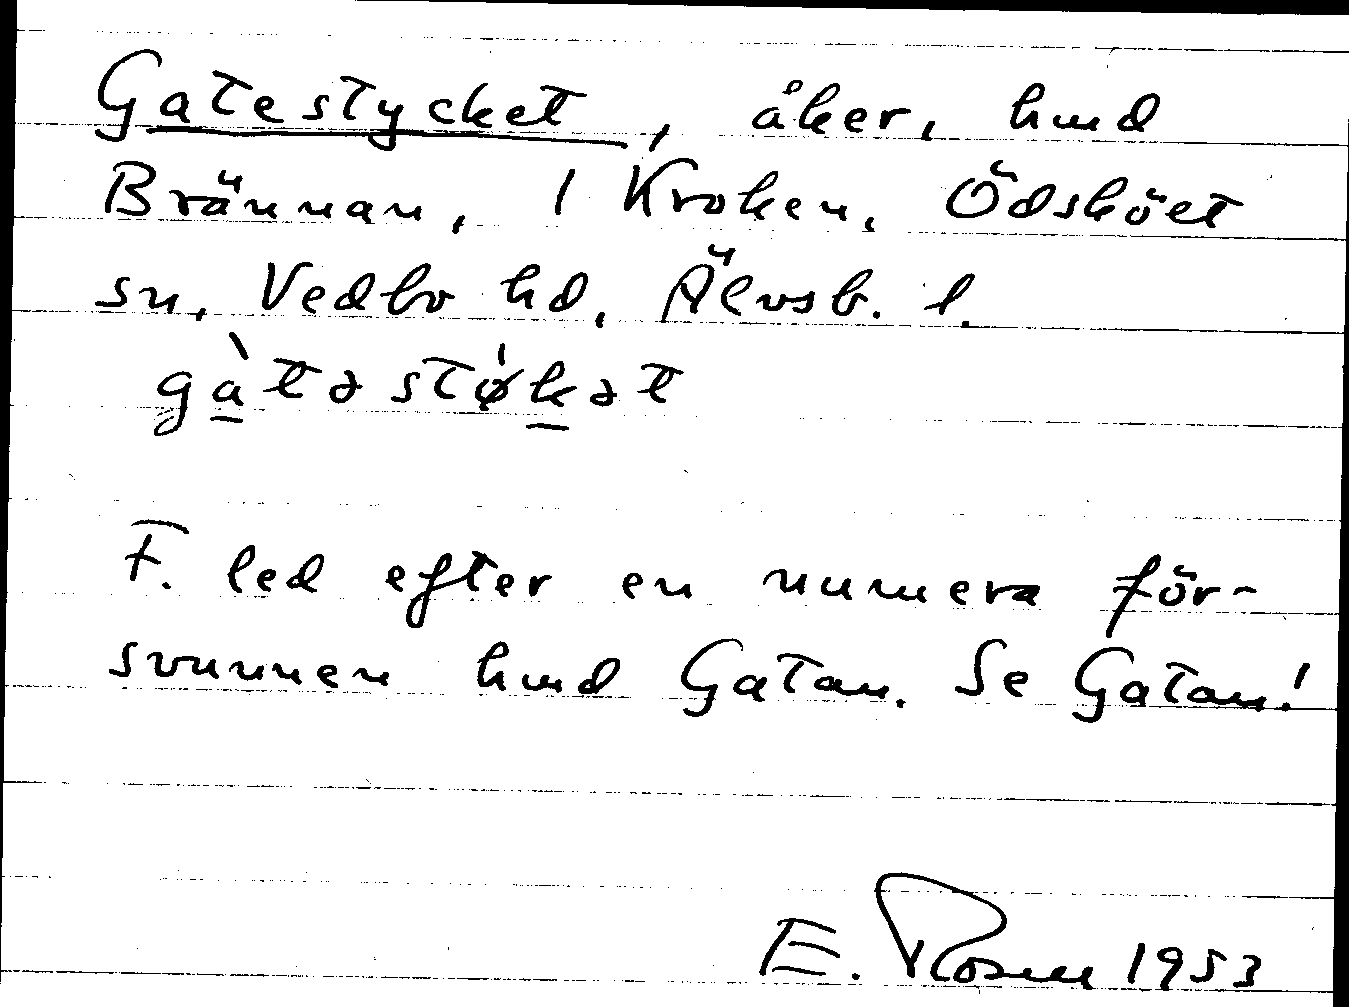 Gatestycket, åker, hmd
Brännan, 1 Kroken, Ödsköet
sn, Vedbo hd, Älvsb. l.
gàtəstø̍kət
F. led efter en numera för-
svunnen hmd Gatan. Se Gatan!
E. Rosen 1953